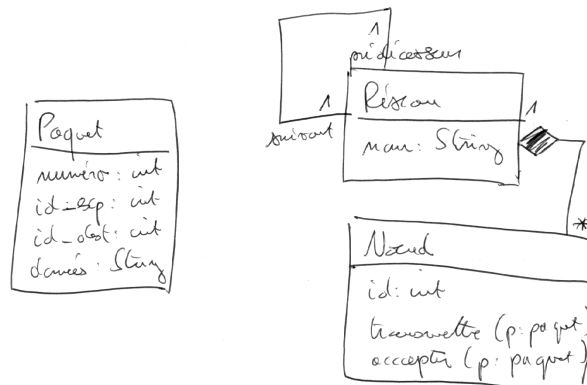 Paquet
numéro: int
id_exp: int
id_dest: int
donnés: String
1
prédécesseur
1
suivant
Réseau
1
nom: String
*
Nœud
id: int
transmettre (p: paquet)
accepter (p: paquet)